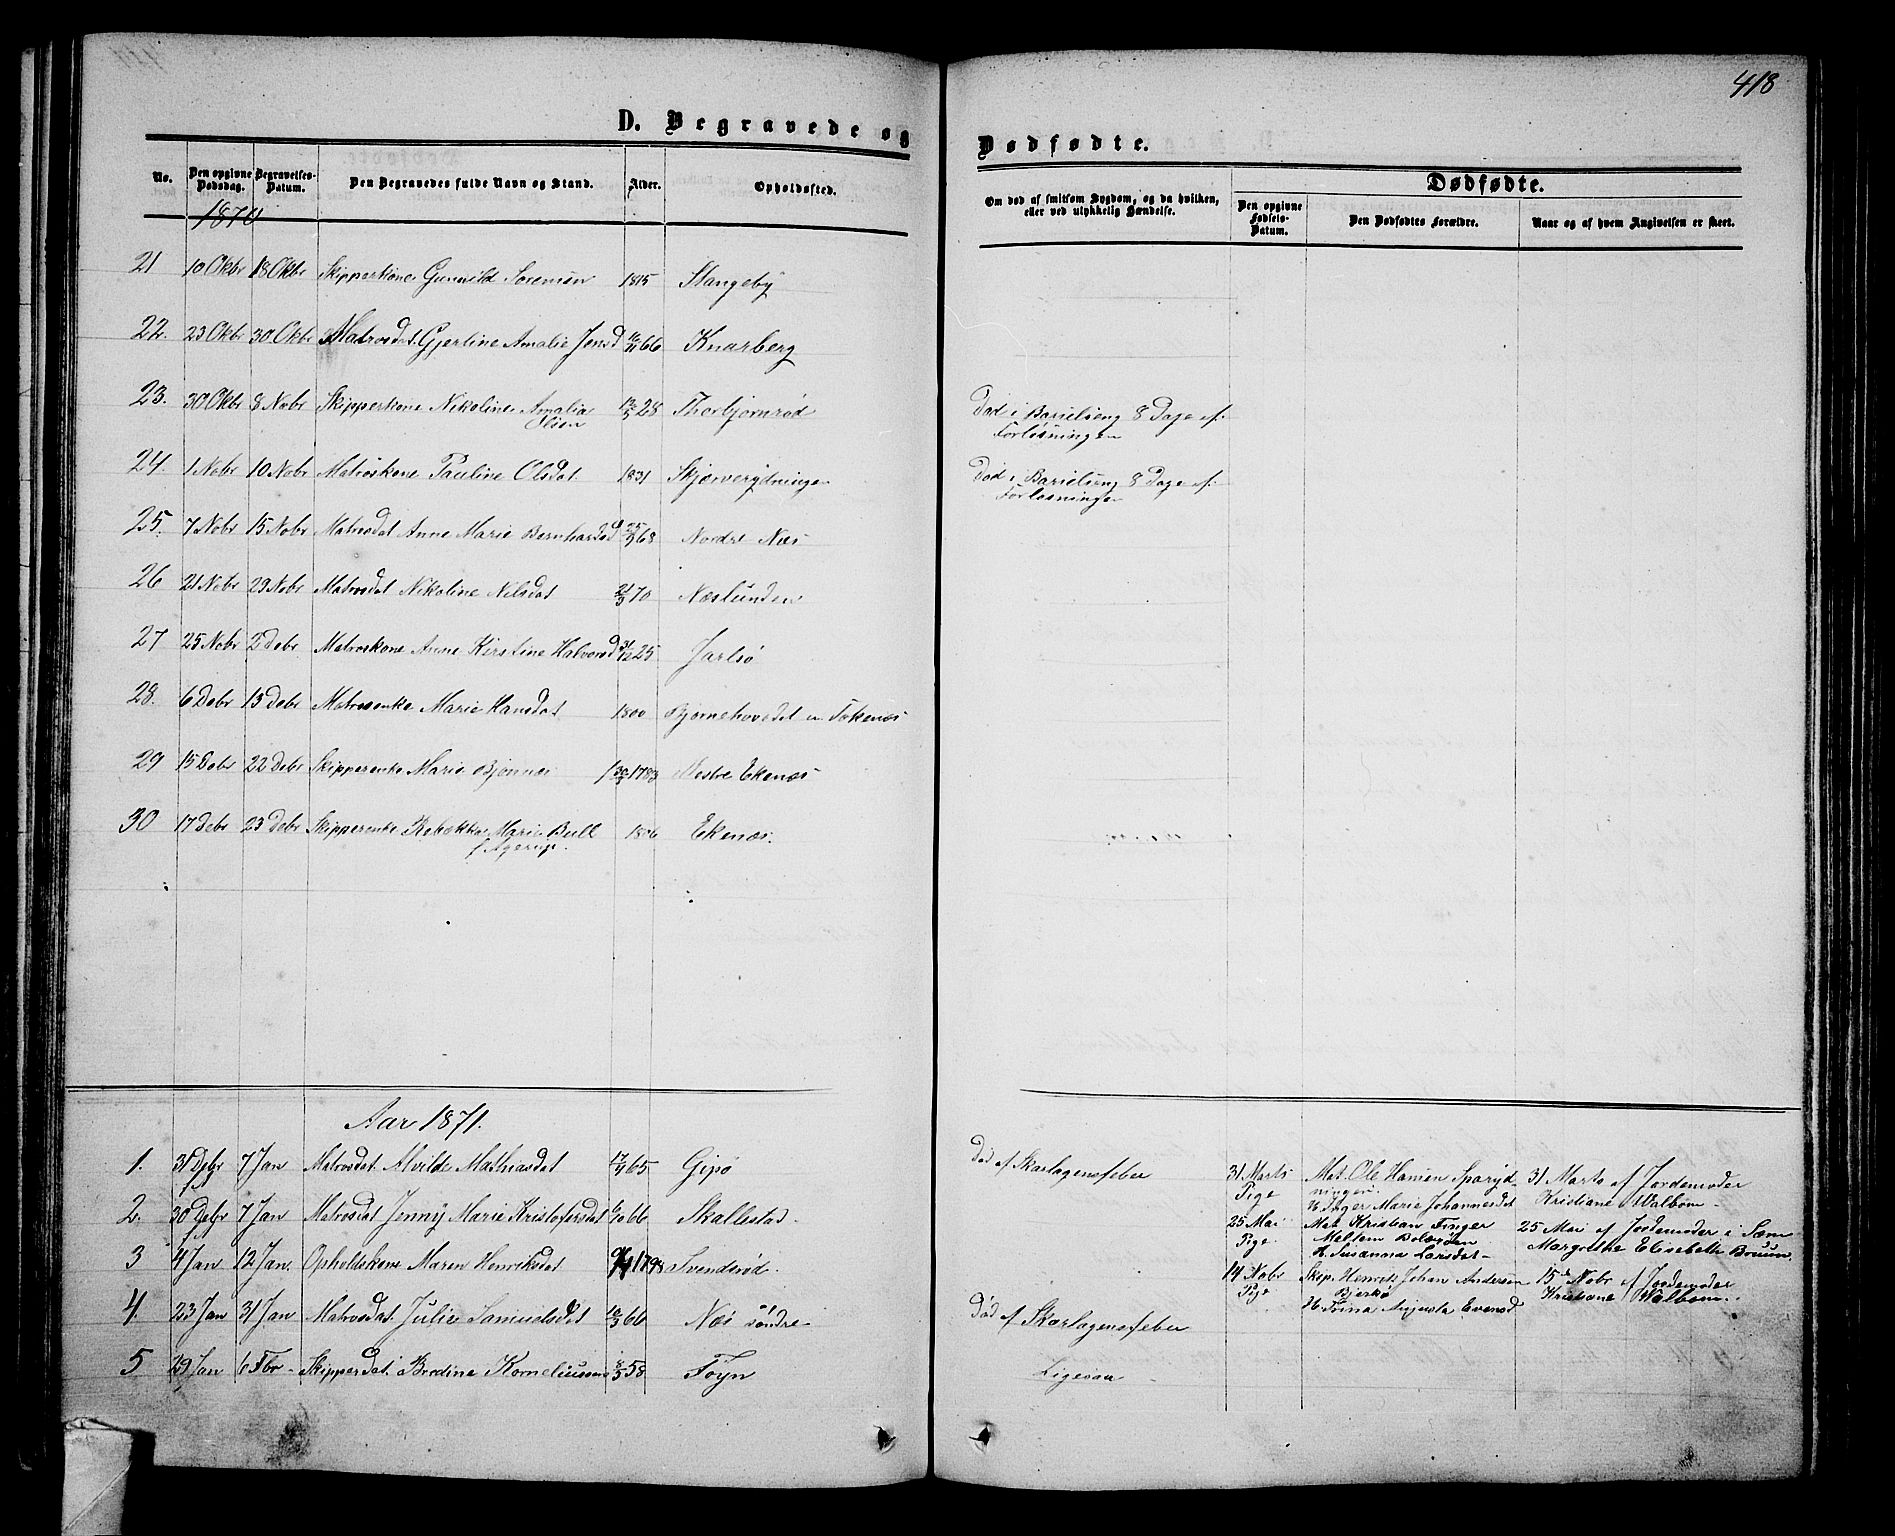 418
D. Begravede og Dødfødte.
No. Den opgivne Dødsdag. Begravelses-Datum. Den Begravedes fulde Navn og Stand. Alder. Opholdssted.
Om død af smitsom Sygdom, og da hvilken, eller ved ulykkelig Hændelse.
Dødfødte.
Den opgivne Fødsels-Datum. Den Dødfødtes Forældre. Naar og af hvem Angivelsen er skeet.
1870
21 10 Okbr 18 Okbr Skipperkone Gunnild Sorensen 1815 Stangeby
22. 23 Okbr 30 Okbr Matrosdat. Gjertine Amalie Jensd 66 Knarberg
23. 30 Okbr 8 Nobr Skipperkone Nikoline Amalia Olsen 28 Thorbjørnrød Død i Barselseng 8 Dage ef. Forløsningen
24. 1 Nobr 10 Nobr Matroskone Pauline Olsdat. 1831 Død i Barselseng 8 Dage ef. Forløsningen
25. 7 Nobr 15 Nobr Matrosdat Anne Marie Bernhardsd 25/9 68 Nordre Næs
26 21 Nobr 29 Nobr Matrosdat Nikoline Nilsdat 70 Næslunden
27 25 Nobr 2 Debr Matroskone Anne Kirstine Halvorsd 31/12 25 Jarlsø
28. 6 Debr 13 Debr Matrosenke Marie Hansdat 1800 Bjørnehovedet u.
29 15 Debr 22 Debr Skipperenke Marie Bjønnes 1783 Vestre Ekenæs
30 17 Debr 23 Debr Skipperenke Rebekka Marie Bull f. Agerup. 1806 Ekenæs.
Aar 1871.
1. 31 Debr 7 Jan Matrosdat. Alvilde Mathiasdat 65 Gipø Død af Skarlagensfeber
2. 30 Debr 7 Jan Matrosdat Jenny Marie Kristofersdat 66 Skallestad.
3 4 Jan 12 Jan. Opholdskone Maren Henriksdat 1798 Svendsrød.
4. 23 Jan 31 Jan Matrosdat. Julie Samuelsdat 66 Næs søndre Død af Skarlagensfeber
5 29 Jan 6 Fbr Skipperdat. Bredine Korneliussen 58 Føyn Ligesaa
31 Marts Pige Mat. Ole Hansen
H. Inger Marie Johannesdat
31 Marts af Jordemoder Kristiane Walbom
25 Mai Pige. Mat. Kristian Finger
H. Susanna Larsdat
25 Mai af Jordemoder i Sæm Margrethe Elisabeth Bruun
14 Nobr Pige Skip. Henrik Johan Andersen Bjerkø
H. Trina Augusta Evensd
15de Nobr af Jordemoder Kristiane Walbom.